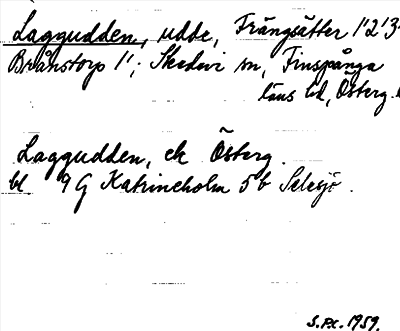 Laggudden, udde, Frängsätter 1'2'3'
Brånstorp 1'; Skedevi sn, Finspånga
läns hd, Österg.
Laggudden, ek Österg.
bl 9 G Katrineholm 5 b Selesjö.
S.PX. 1959.